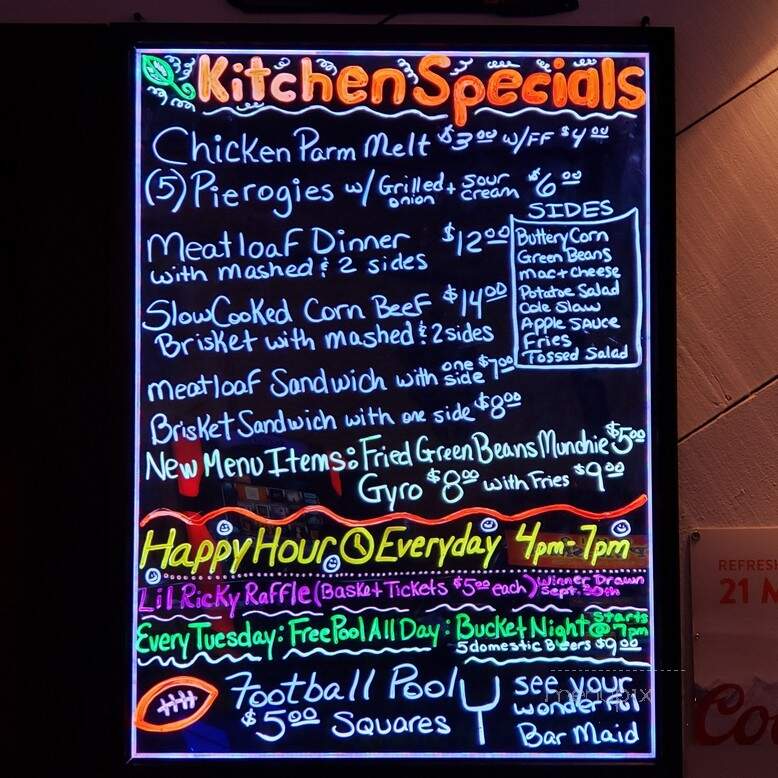 Kitchen Specials
Chicken Parm Melt $3.00 w/FF $4.00
(5) Pierogies w/ Grilled onion + Sour cream $6.00
Meatloaf Dinner $12.00
with mashed & 2 sides
Slow Cooked Corn Beef $14.00
Brisket with mashed & 2 sides
SIDES
Buttery Corn
Green Beans
mac + cheese
Potatoe Salad
Cole Slaw
Apple Sauce
Fries
Tossed Salad
meatloaf Sandwich with one side $7.00
Brisket Sandwich with one side $8.00
New Menu Items: Fried Green Beans Munchie $5.00
Gyro $8.00 with Fries $9.00
Happy Hour Everyday 4pm-7pm
Lil Ricky Raffle (Basket Tickets $5.00 each) Winner Drawn
Sept. 30th
Every Tuesday: Free Pool All Day: Bucket Night Starts @ 7pm
5 domestic Beers $9.00
Football Pool
$5.00 Squares
see your
wonderful
Bar Maid
menupix
REFRESH
21 M
Coo